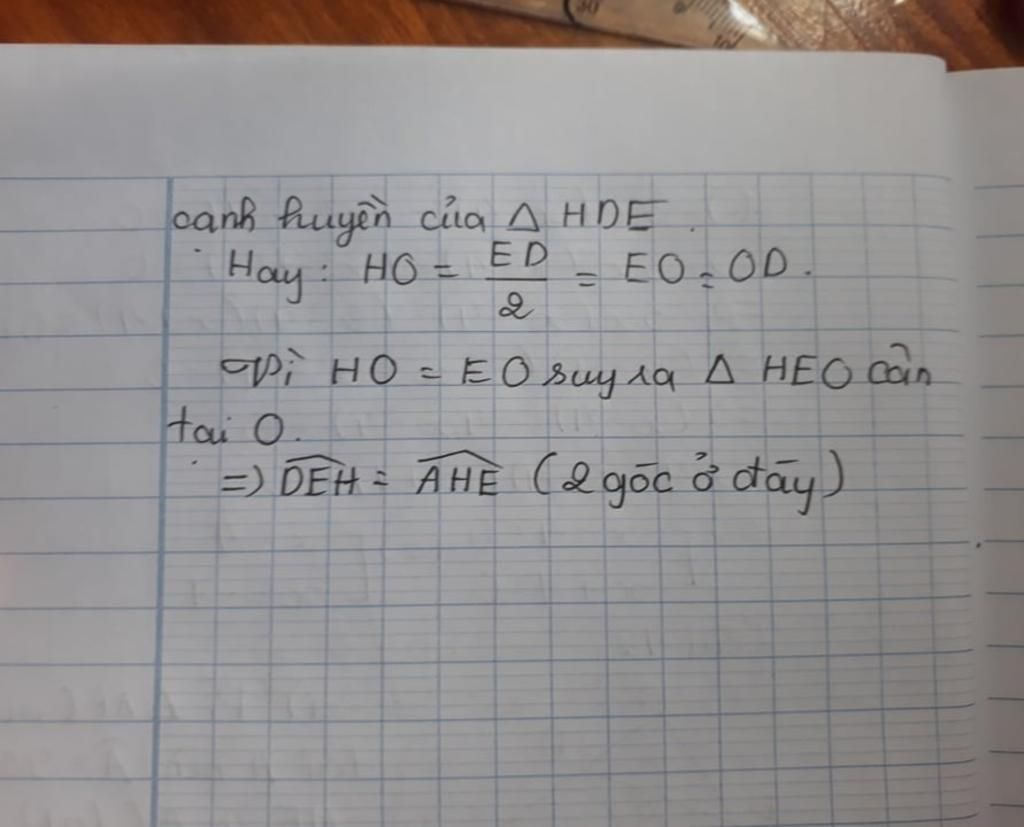 cạnh huyền của Δ HDE.
Hay: HO = ED/2 = EO = OD.
Vì HO = EO suy ra Δ HEO cân
tại O.
=) \widehat{DEH} = \widehat{AHE} (2 góc ở đáy)